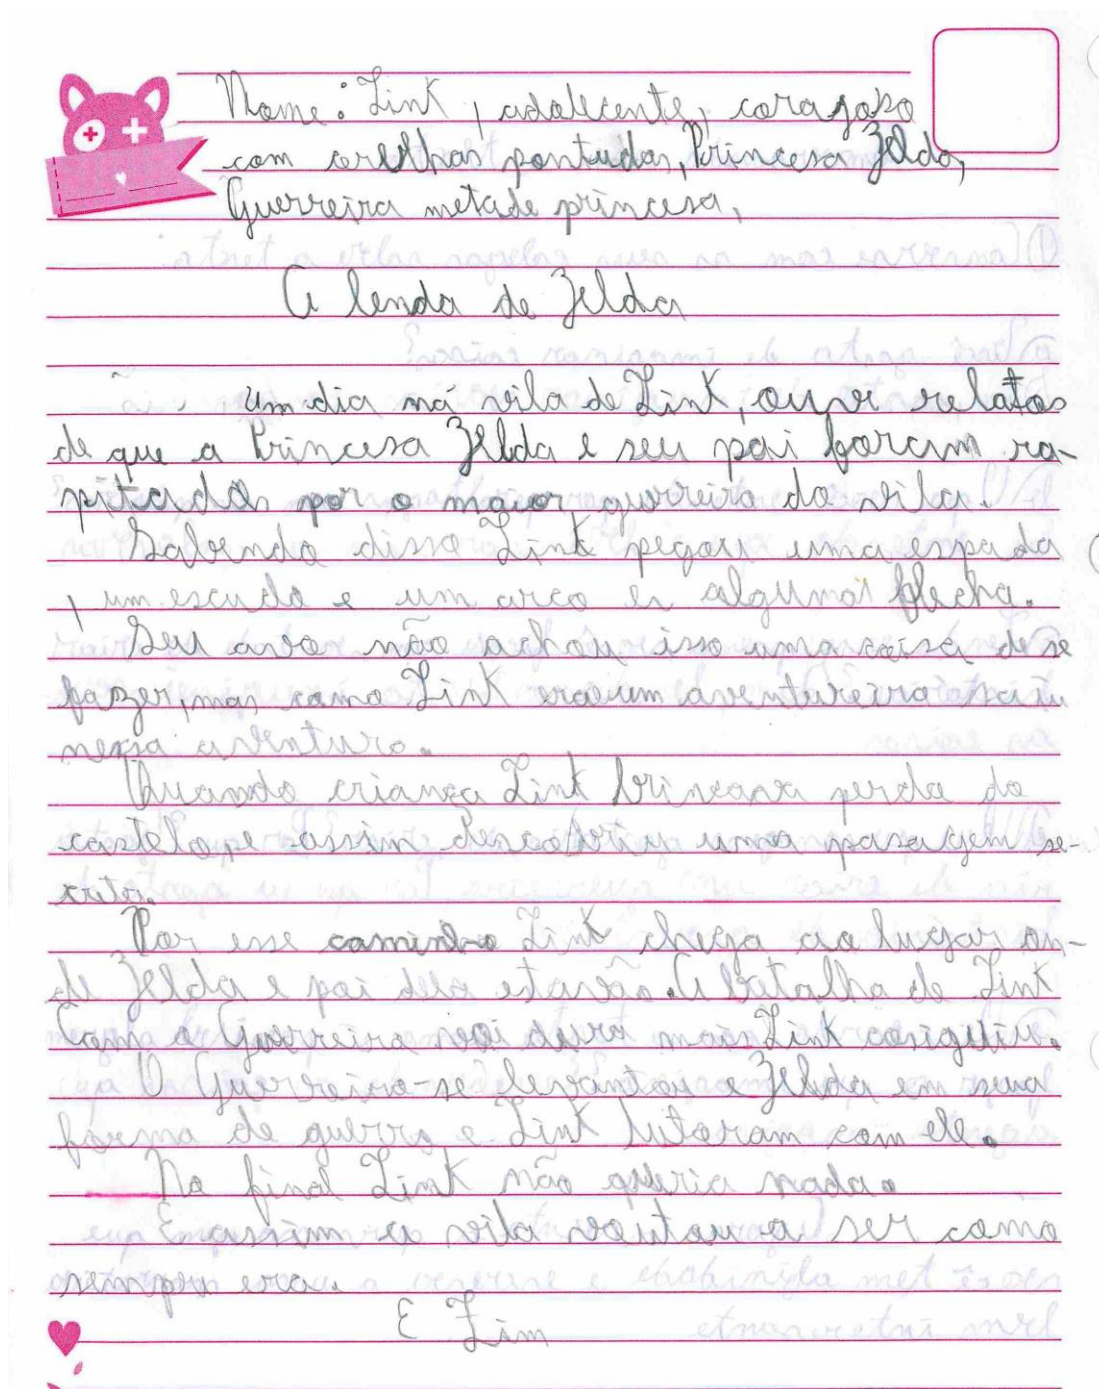 Nome: Link, adolecente, corajoso
com orelhas pontudas, Princesa Zelda,
Guerreira metade princesa,
A lenda de Zelda
um dia na vila de Link, ouvi relatos
de que a Princesa Zelda e seu pai foram ra-
pitados por o maior guerreiro da vila.
Sabendo disso Link pegou uma espada
, um escudo e um arco e alguma flecha.
Seu avo não achou isso uma coisa de se
fazer, mas como Link era um aventureiro saiu
nessa aventura.
Quando criança Link brincava perda do
castelo, e assim descobriu uma pasagem se-
creta.
Por esse caminho Link chega ao lugar on-
de Zelda e pai dela estavão. A batalha de Link
Com o Guerreiro foi dura mais Link consiguiu.
O Guerreiro-se levantou e Zelda em sua
forma de guerra e Link lutaram com ele.
No final Link não queria nada.
E assim a vila voutou a ser como
sempre era.
E Fim